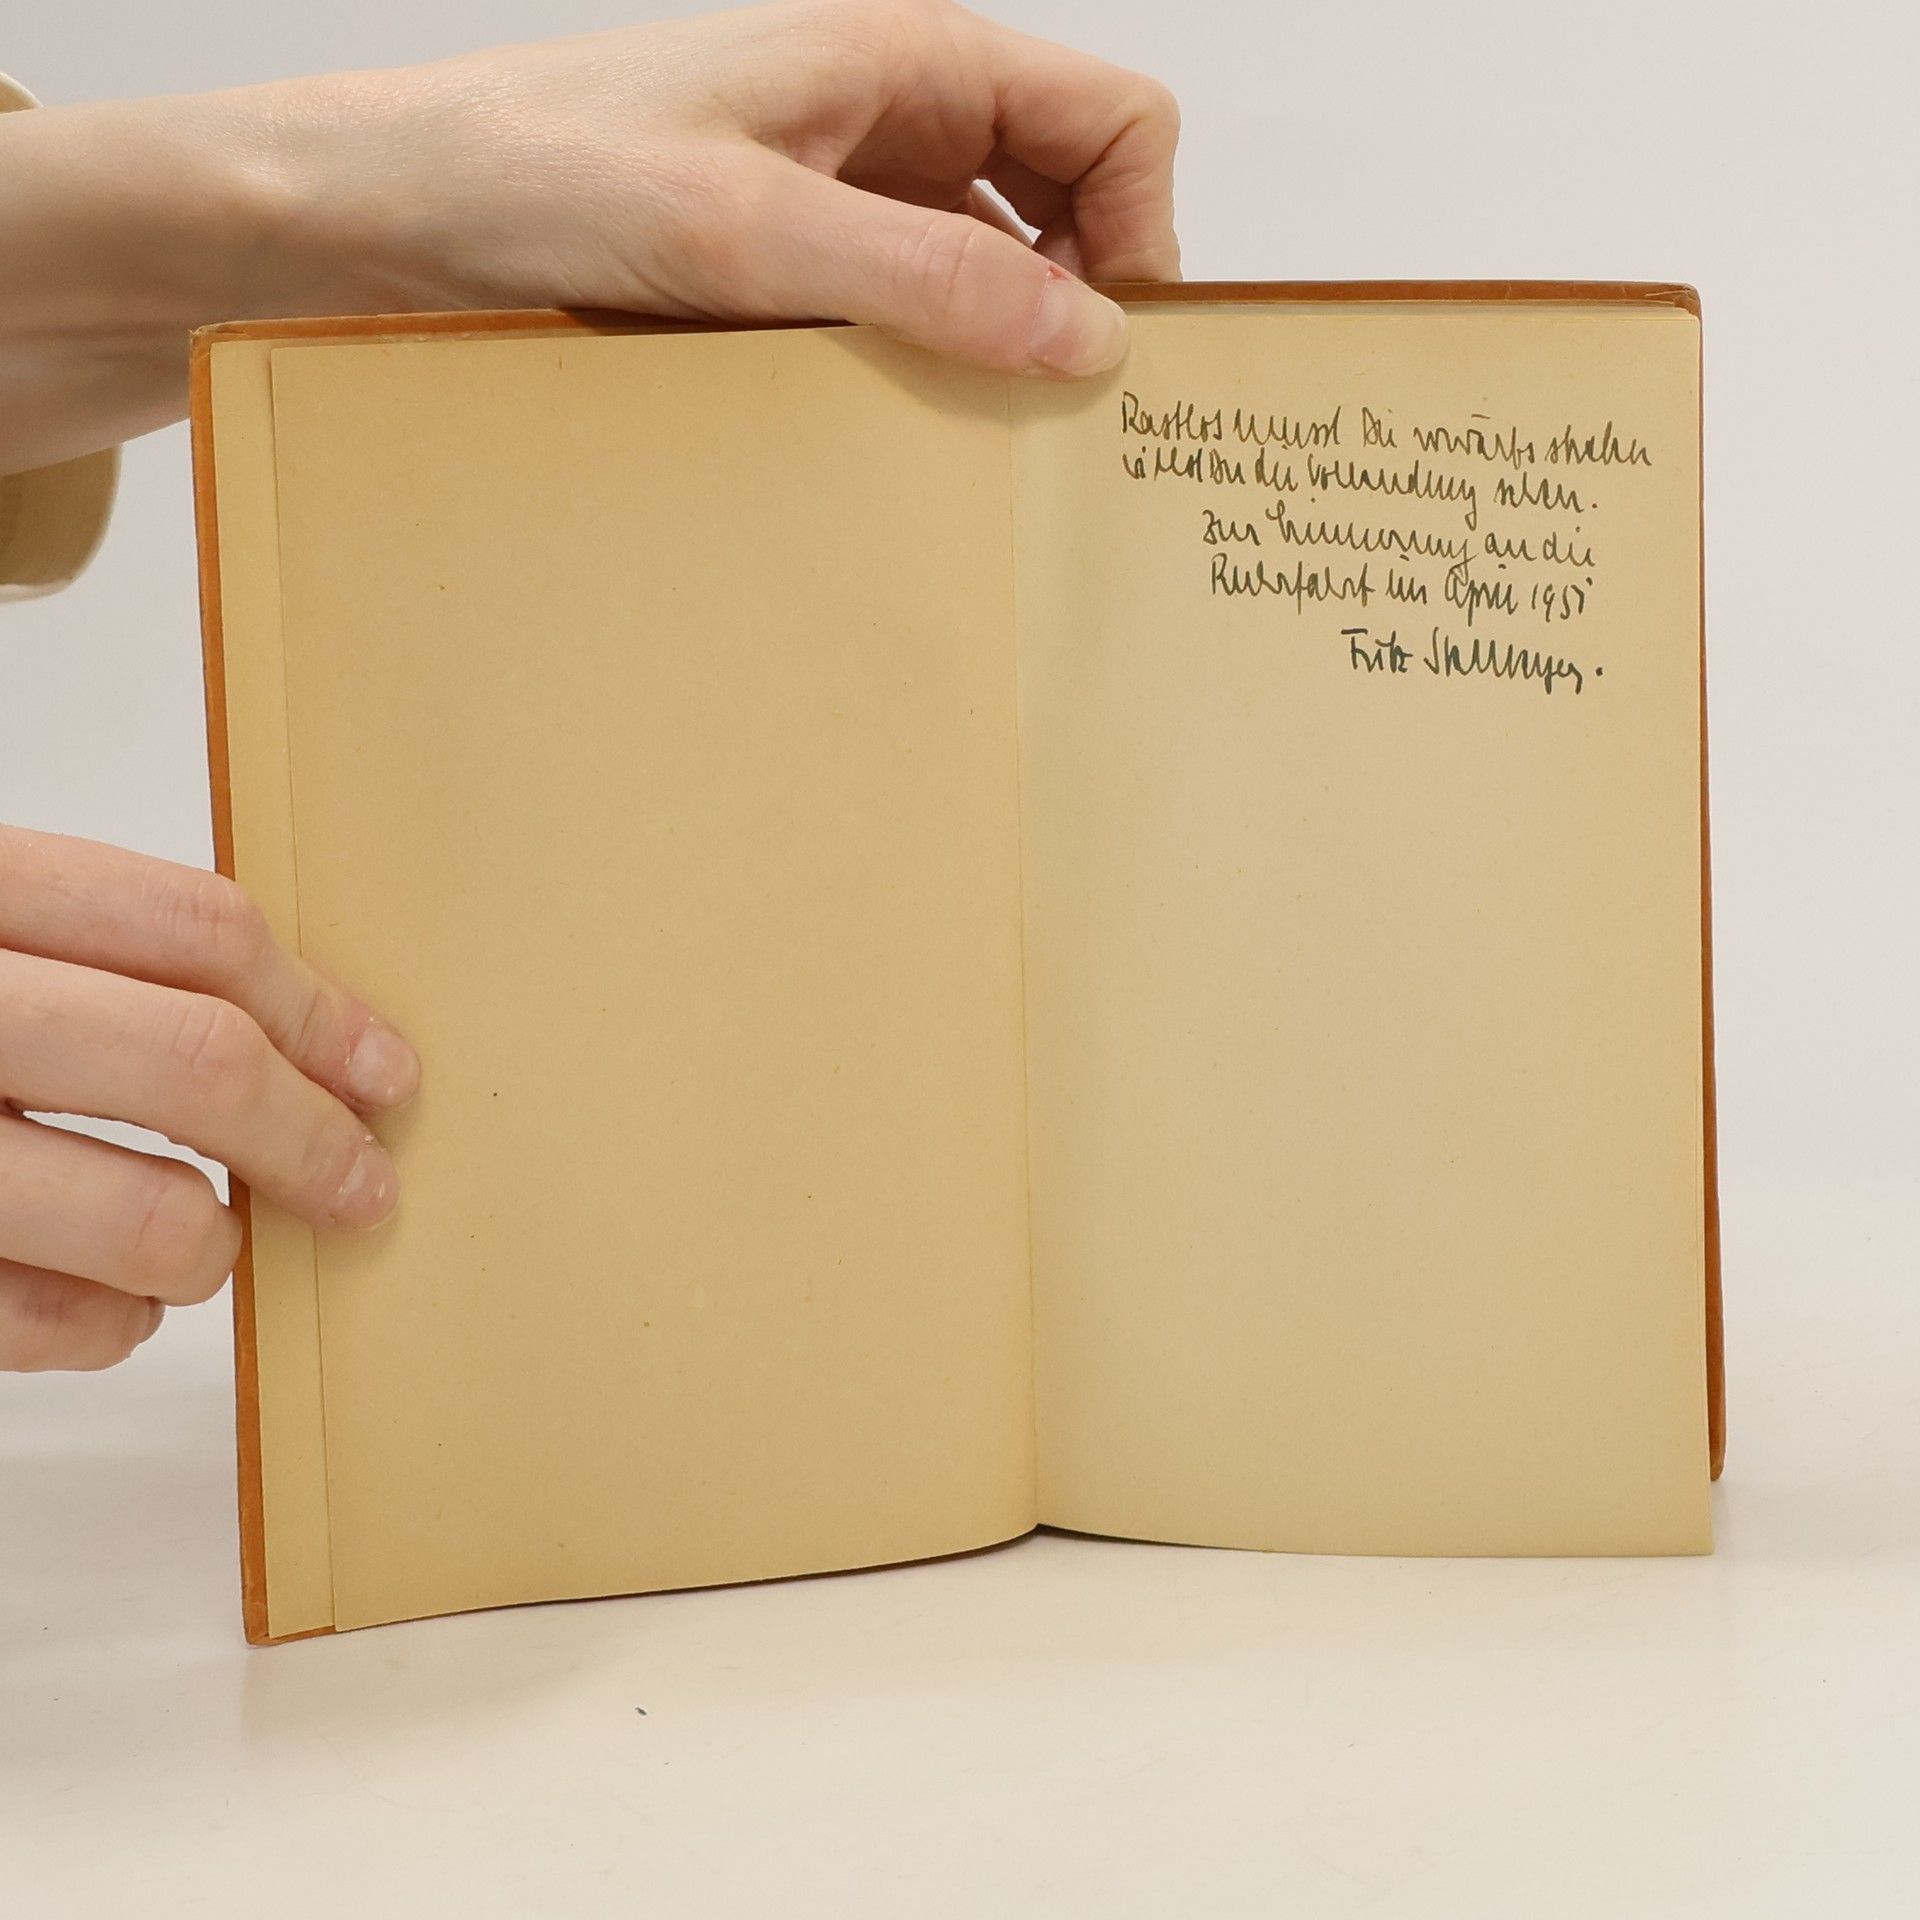 Rastlos musst Du vorwärts streben
willst Du die Vollendung sehen.
Zur Erinnerung an die
Ruhrfahrt im April 1951
Fritz